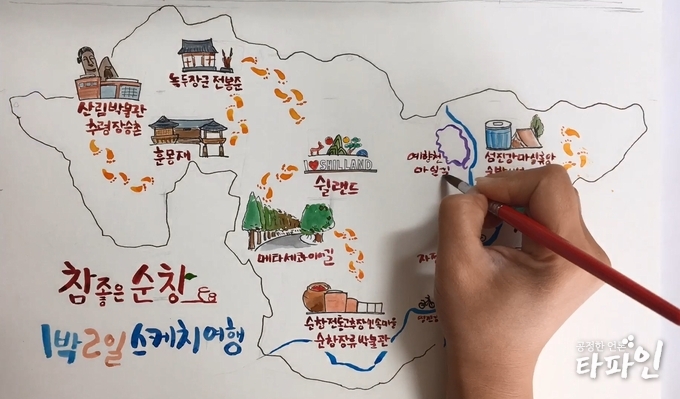 녹두장군 전봉준
산림박물관
추령장승촌
훈몽재
I SHILLAND
쉴랜드
예향천리
마실길
섬진강마실휴양
메타세쿼이아길
참좋은 순창
1박2일 스케치여행
순창전통고추장민속마을
순창장류박물관
공정한 언론
타파인